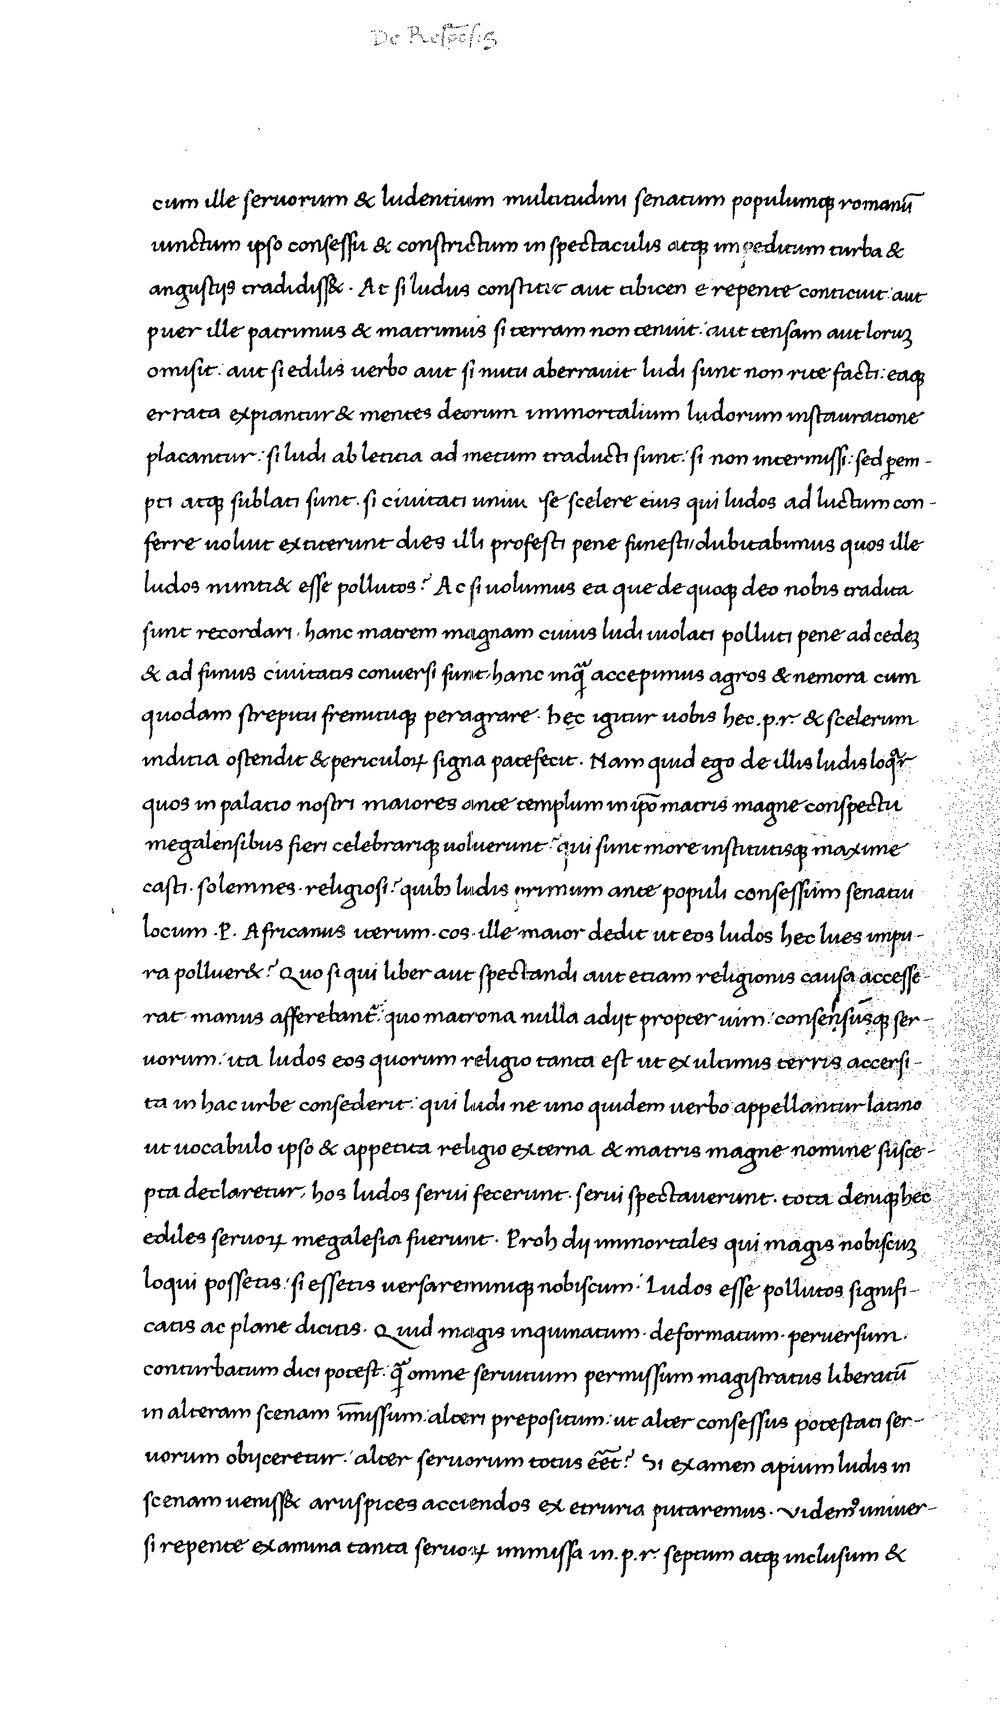 De Respōsis
cum ille seruorum & ludentium multitudini senatum populumq romanū
uinctum ipso consessu & constrictum in spectaculis atq impeditum turba &
angustijs tradidiss&. At si ludus constitit aut tibicen e repente conticuit: aut
puer ille patrimus & matrimus si terram non tenuit: aut tensam aut loruꝫ
omisit: aut si edilis uerbo aut si nutu aberrauit ludi sunt non rite facti: eaq
errata expiantur & mentes deorum immortalium ludorum instauratione
placantur: si ludi ab letitia ad metum traducti sunt: si non intermissi: sed pem-
pti atq sublati sunt. si ciuitati uniu se scelere eius qui ludos ad luctum con-
ferre uoluit extiterunt dies illi profesti pene funesti/dubitabimus quos ille
ludos nunti& esse pollutos? Ac si uolumus ea que de quoq deo nobis tradita
sunt recordari, hanc matrem magnam cuius ludi uiolati polluti pene ad cedeꝫ
& ad funus ciuitatis conuersi sunt: hanc inq̄ accepimus agros & nemora cum
quodam strepitu fremituq peragrare. hęc igitur uobis hec .p.r. & scelerum
inditia ostendit & periculoꝝ signa patefecit. Nam quid ego de illis ludis loqr
quos in palatio nostri maiores ante templum in ipō matris magne conspectu
megalensibus fieri celebrariq uoluerunt? qui sunt more institutisq maxime
casti. solemnes. religiosi? quibꝫ ludis primum ante populi consessum senatui
locum .P. Africanus iterum .cos. ille maior dedit ut eos ludos hec lues impu-
ra polluer&? Quo si qui liber aut spectandi aut etiam religionis causa accesse-
rat manus afferebant: quo matrona nulla adijt propter uim: consensusq ser-
uorum: ita ludos eos quorum religio tanta est ut ex ultimis terris accersi-
ta in hac urbe consederit: qui ludi ne uno quidem uerbo appellantur latino
ut uocabulo ipso & appetita religio externa & matris magne nomine susce-
pta declaretur, hos ludos serui fecerunt. serui spectauerunt. tota deniq hec
ediles seruoꝝ megalesia fuerunt. Proh dij immortales qui magis nobiscuꝫ
loqui possetis: si essetis uersareminiq nobiscum: Ludos esse pollutos signifi-
catis ac plane dicitis. Quid magis inquinatum. deformatum. peruersum.
conturbatum dici potest. q̄ omne seruitium permissum magistratus liberatū
in alteram scenam īmissum: alteri prepositum: ut alter consessus potestati ser-
uorum obijceretur: alter seruorum totus eēt? Si examen apium ludis in
scenam ueniss& aruspices acciendos ex etruria putaremus. Videmꝰ uniuer-
si repente examina tanta seruoꝝ immissa in .p.r. septum atq inclusum &